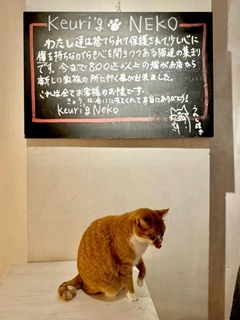 Keuri's 🐾 NEKO
わたし達は捨てられて保護されて少し心に
傷を持ちながらも心を開きつつある猫達の集まり
です。今まで800匹以上の猫がお店から
新しい家族の所に行く事が出来ました。
これは全てお客様のお陰です。
きょうは会いに来てくれて本当にありがとう!
Keuri's Neko